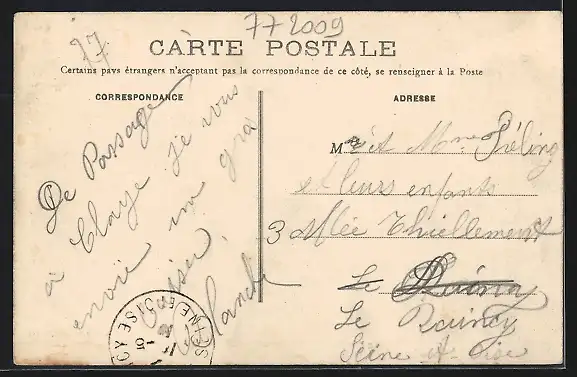 77
772009
CARTE POSTALE
Certains pays étrangers n'acceptant pas la correspondance de ce côté, se renseigner à la Poste
CORRESPONDANCE
De Passage
à Claye je vous
envoie un gros
Baiser
Blanche
ADRESSE
Mr et Mme
et leurs enfants
3 Allée Thiellement
Le Raincy
Le Raincy
Seine et Oise
SEINE-ET-OISE